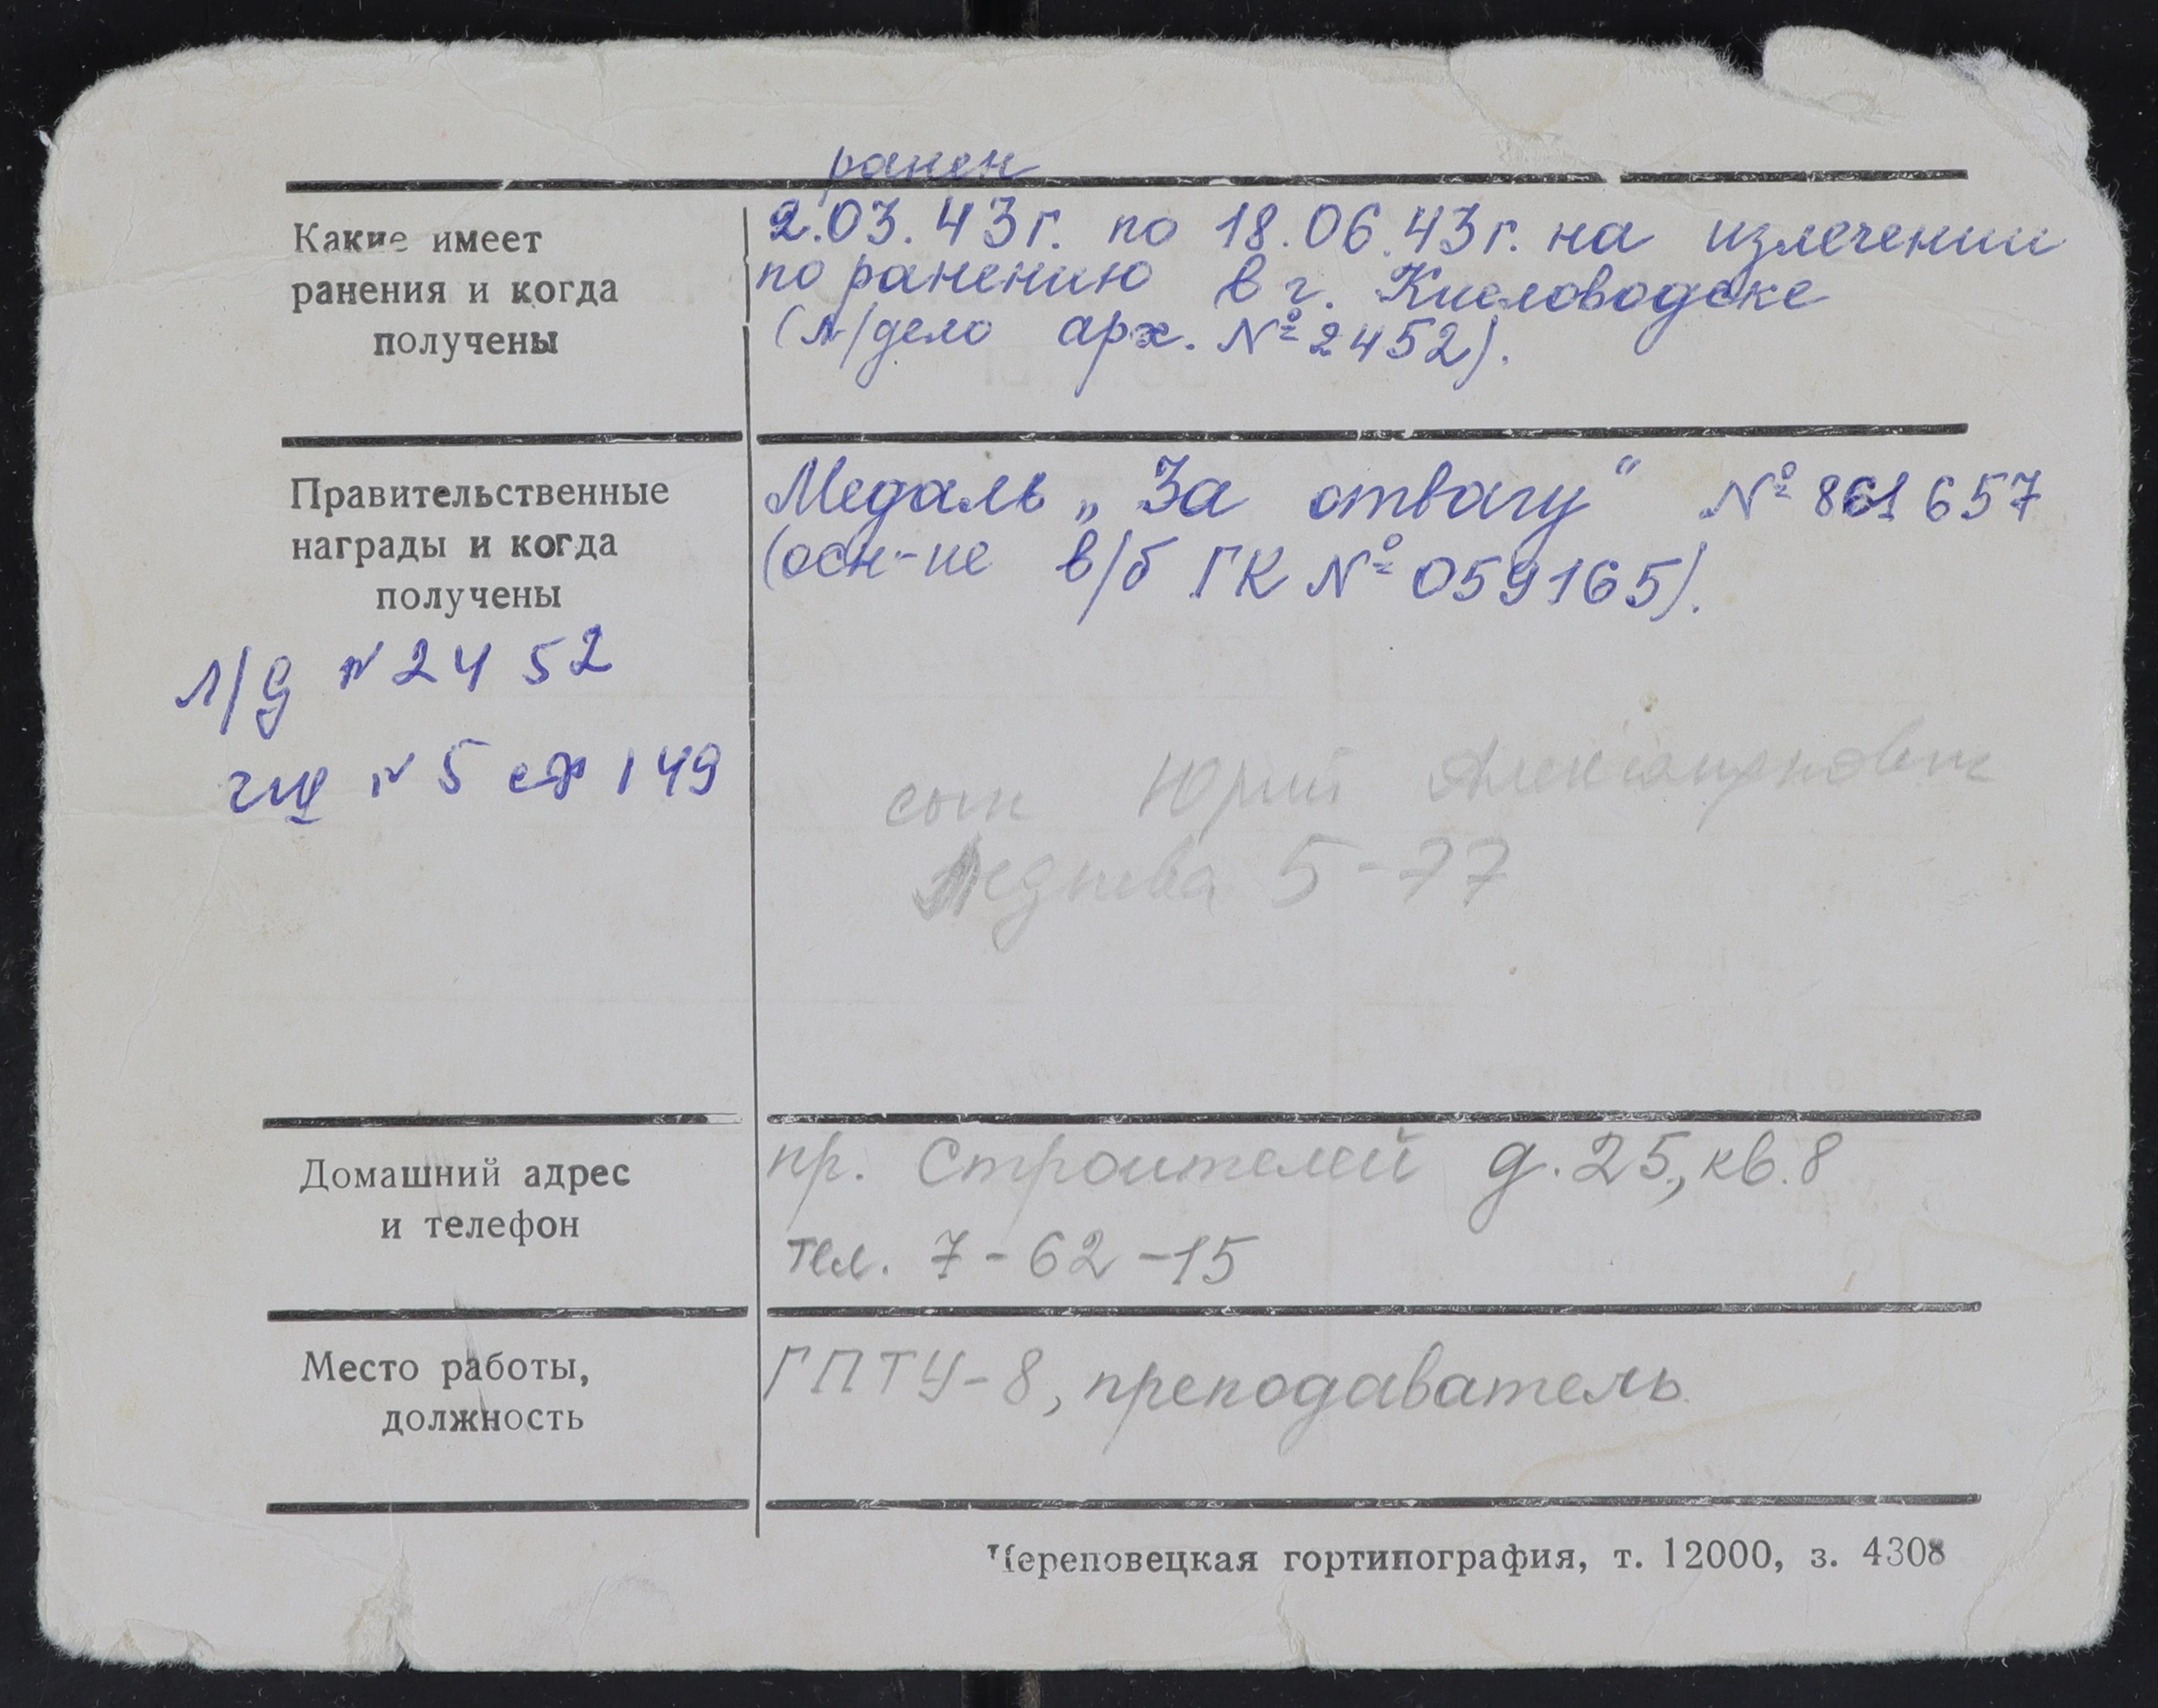 ранен
Какие имеет
ранения и когда
получены
2.03.43г. по 18.06.43г. на излечении
по ранению в г. Кисловодске
(л/дело арх. № 2452).
Правительственные
награды и когда
получены
Медаль „За отвагу“ № 861657
(осн-ие в/б ГК № 059165).
л/д № 2452
№ 5 149
сын Юрий Александрович
5-77
Домашний адрес
и телефон
пр. Строителей д.25, кв.8
тел. 7-62-15
Место работы,
должность
ГПТУ-8, преподаватель
Череповецкая гортипография, т. 12000, з. 4308